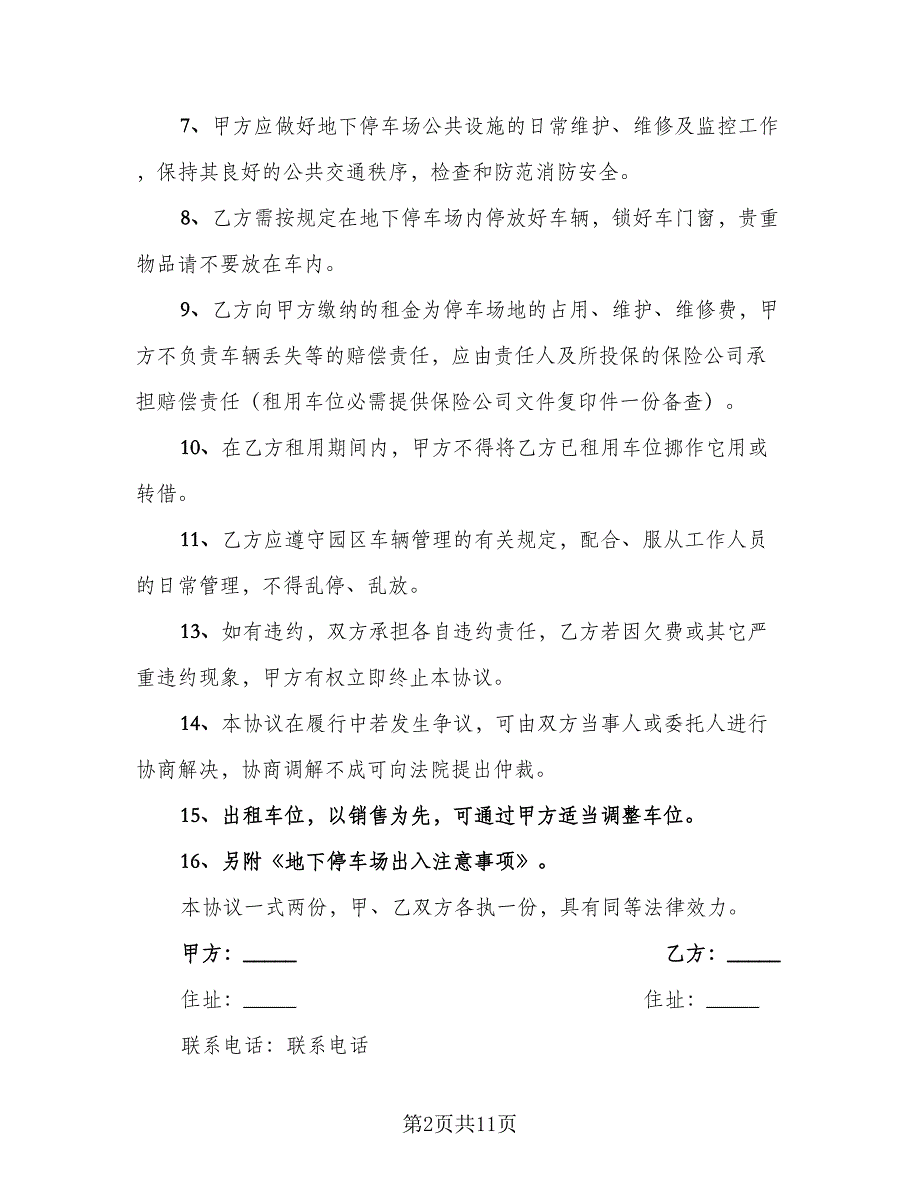 7、甲方应做好地下停车场公共设施的日常维护、维修及监控工作
，保持其良好的公共交通秩序，检查和防范消防安全。
8、乙方需按规定在地下停车场内停放好车辆，锁好车门窗，贵重
物品请不要放在车内。
9、乙方向甲方缴纳的租金为停车场地的占用、维护、维修费，甲
方不负责车辆丢失等的赔偿责任，应由责任人及所投保的保险公司承
担赔偿责任（租用车位必需提供保险公司文件复印件一份备查）。
10、在乙方租用期间内，甲方不得将乙方已租用车位挪作它用或
转借。
11、乙方应遵守园区车辆管理的有关规定，配合、服从工作人员
的日常管理，不得乱停、乱放。
13、如有违约，双方承担各自违约责任，乙方若因欠费或其它严
重违约现象，甲方有权立即终止本协议。
14、本协议在履行中若发生争议，可由双方当事人或委托人进行
协商解决，协商调解不成可向法院提出仲裁。
15、出租车位，以销售为先，可通过甲方适当调整车位。
16、另附《地下停车场出入注意事项》。
本协议一式两份，甲、乙双方各执一份，具有同等法律效力。
甲方：_____ 乙方：_____
住址：_____ 住址：_____
联系电话：联系电话
第2页共11页